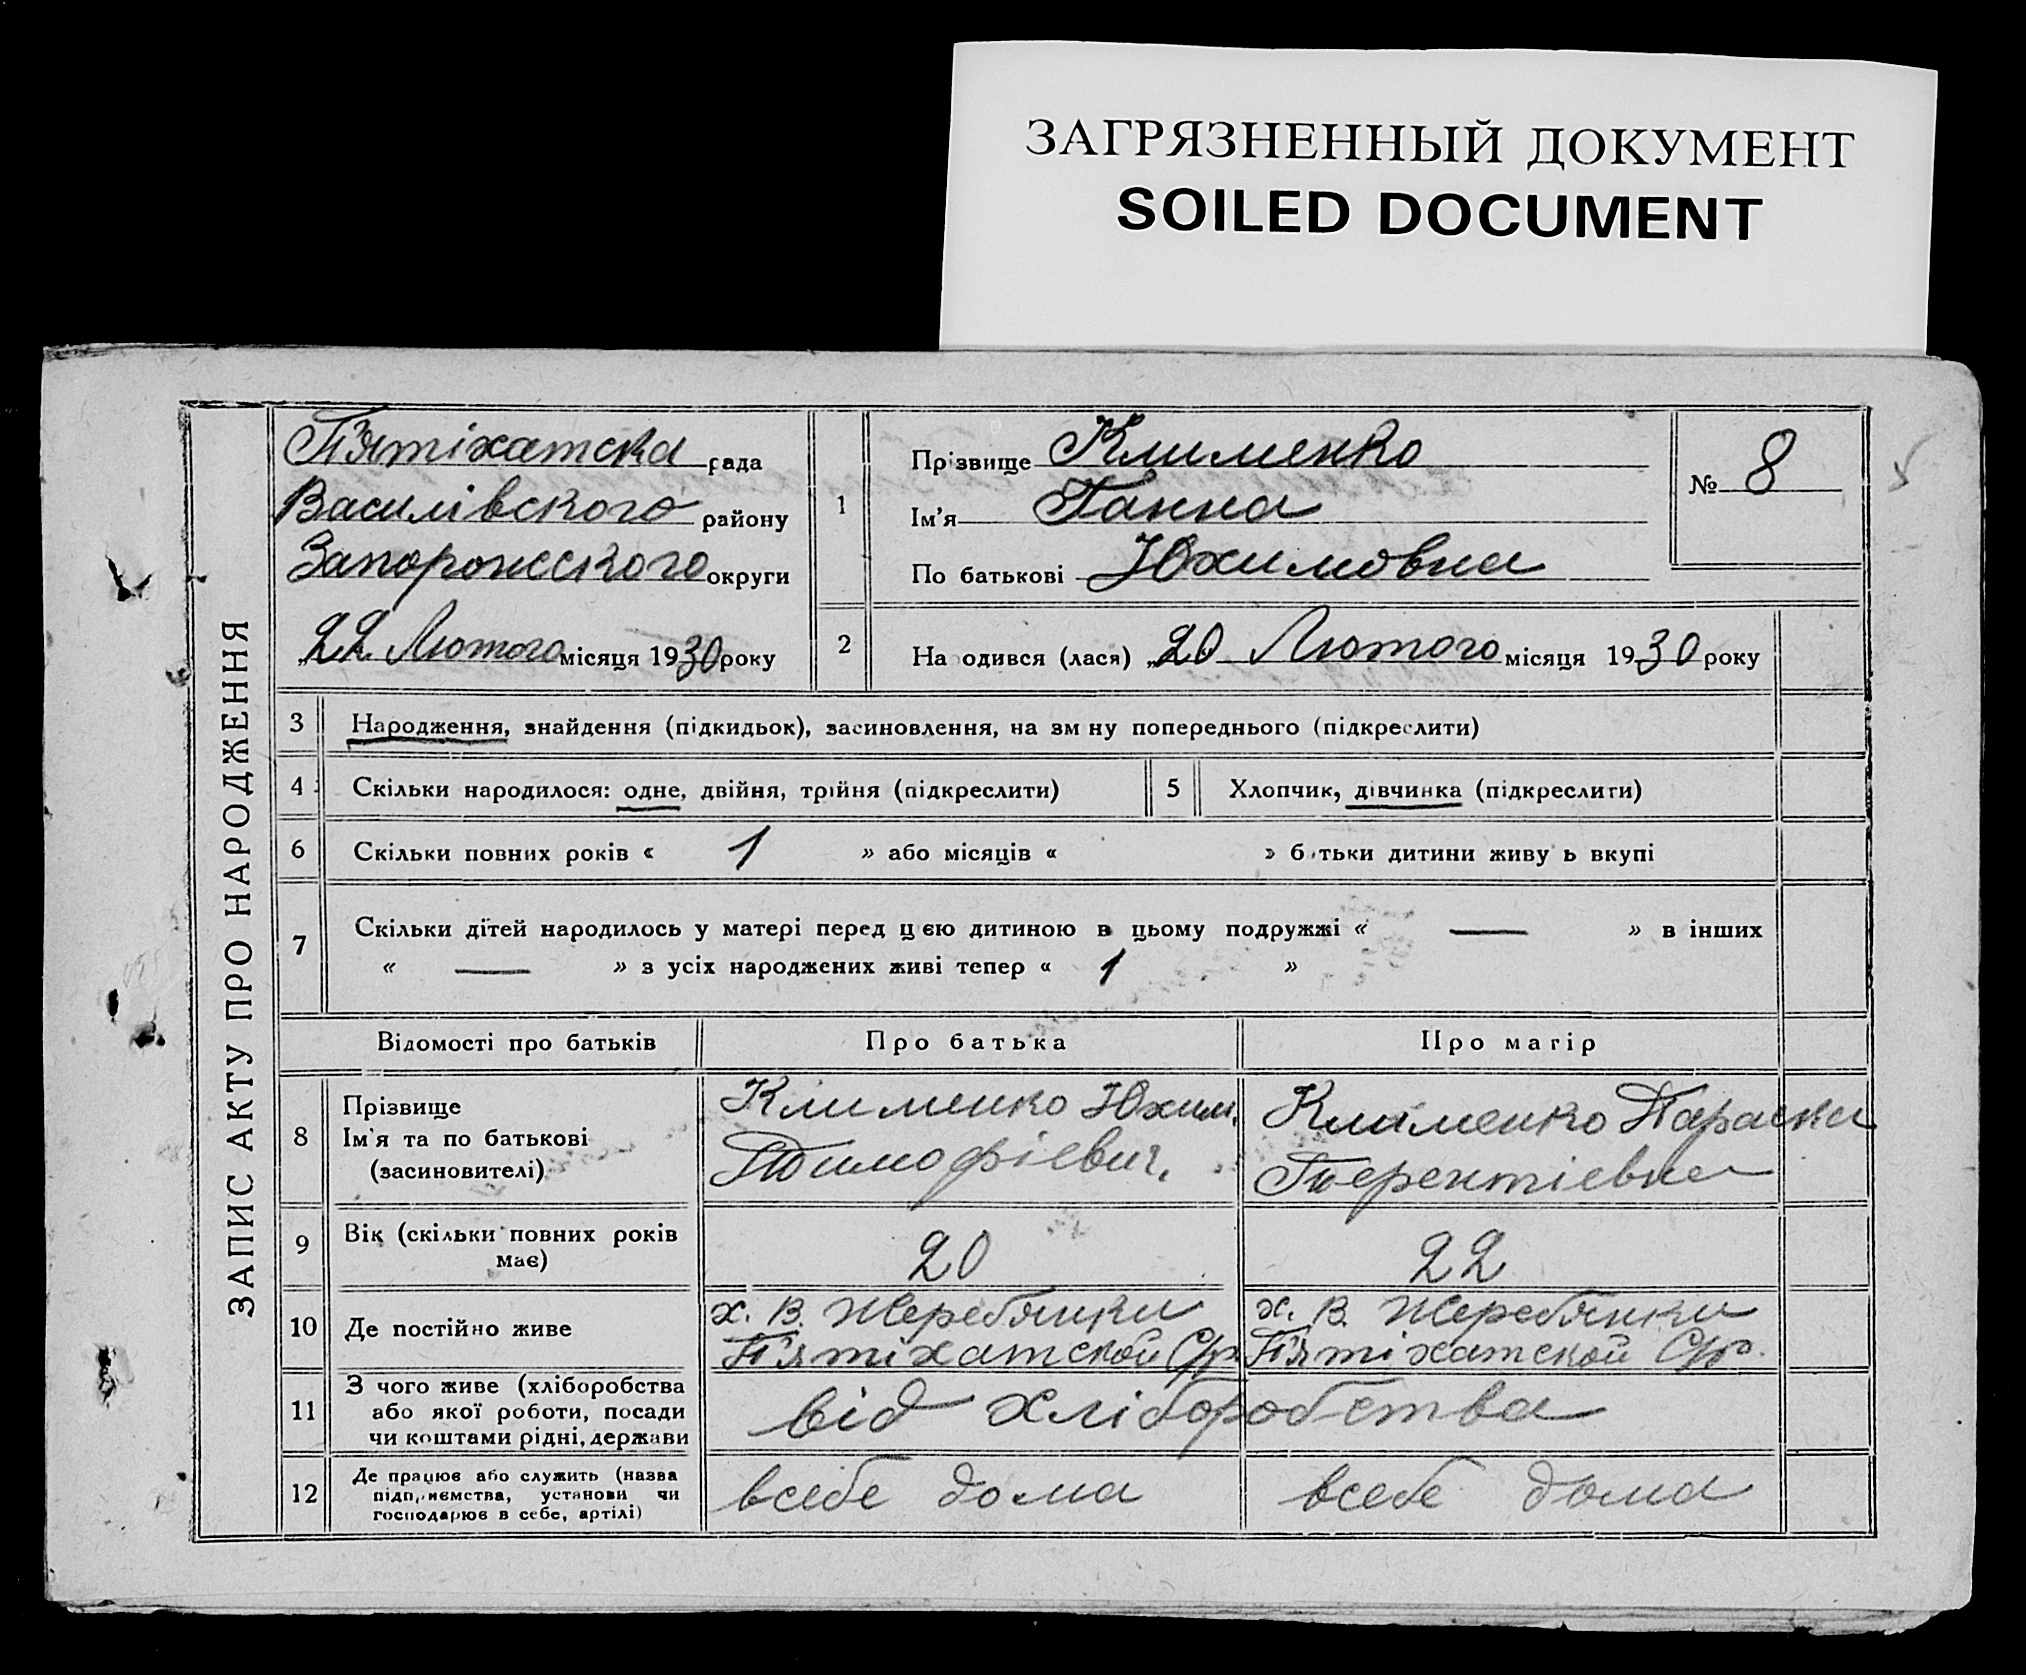 ЗАГРЯЗНЕННЫЙ ДОКУМЕНТ
SOILED DOCUMENT
ЗАПИС АКТУ ПРО НАРОДЖЕННЯ
П'ятіхатска рада
Василівского району
Запорожского округи
„22 Лютого місяця 1930 року
1
Прізвище Клименко
Ім'я Ганна
По батькові Юхимовна
№ 8
2 На одився (лася) „20 Лютого місяця 1930 року
3 Народження, знайдення (підкидьок), засиновлення, на зм ну попереднього (підкреслити)
4 Скільки народилося: одне, двійня, трійня (підкреслити) 5 Хлопчик, дівчинка (підкреслити)
6 Скільки повних років « 1 » або місяців « » б тьки дитини живу ь вкупі
7 Скільки дітей народилось у матері перед цею дитиною в цьому подружжі « — » в інших
« — » з усіх народжених живі тепер « 1 »
Відомості про батьків Про батька Про матір
8
Прізвище
Ім'я та по батькові
(засиновителі)
Клименко Юхим,
Тимофієвич,
Клименко Параска
Терентіевна
9
Вік (скільки повних років
має)
20 22
10 Де постійно живе
х. В. Жеребянки
П'ятіхатской С/р.
х. В. Жеребянки
П'ятіхатской С/р.
11
З чого живе (хліборобства
або якої роботи, посади
чи коштами рідні, держави
від хліборобства
12
Де працює або служить (назва
підприємства, установи чи
господарює в себе, артілі)
всебе дома всебе дома